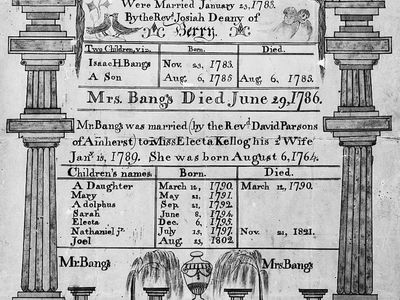 Were Married January 23, 1783.
By the Revd. Josiah Deany of
Berry.
Two Children, viz. Born. Died.
Isaac H. Bangs Nov. 23, 1783.
A Son Aug. 6, 1785 Aug. 6, 1785.
Mrs. Bangs Died June 29, 1786.
Mr. Bangs was married (by the Revd. David Parsons
of Amherst) to Miss Electa Kellog his 2d Wife
Jany. 15, 1789. She was born August 6, 1764.
Children's names. Born. Died.
A Daughter March 12, 1790. March 12, 1790.
Mary May 21, 1791.
Adolphus Sep. 21, 1792.
Sarah June 8, 1794.
Electa Dec. 6, 1795.
Nathaniel Jr. July 15, 1797. Nov. 21, 1821.
Joel Aug. 23, 1802.
Mr. Bangs Mrs. Bangs